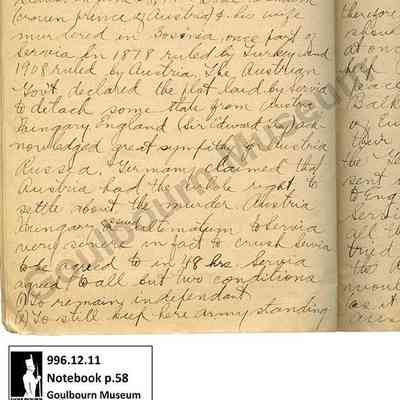 (crown prince of Austria) & his wife
murdered in Bosnia, once part of
Servia In 1878 ruled by Turkey and
1908 ruled by Austria. The Austrian
Gov't declared the plot laid by Servia
to detach some state from Austria
Hungary England (Sir Edward Grey) ack-
nowledged great sympathy to Austria
Russia. Germany claimed that
Austria had the right to
settle about the murder Austria
Hungary issued ultematum to Servia
very severe in fact to crush Servia
to be agreed to in 48 hrs. Servia
agreed to all but two conditions
(1) To remain independant
(2) To still keep here army standing
therefore
at once
peace
Balk
their
sent
to Eng
Servi
all the
tried
the A
would
as it
Goulbourn Museum
996.12.11
Notebook p.58
Goulbourn Museum